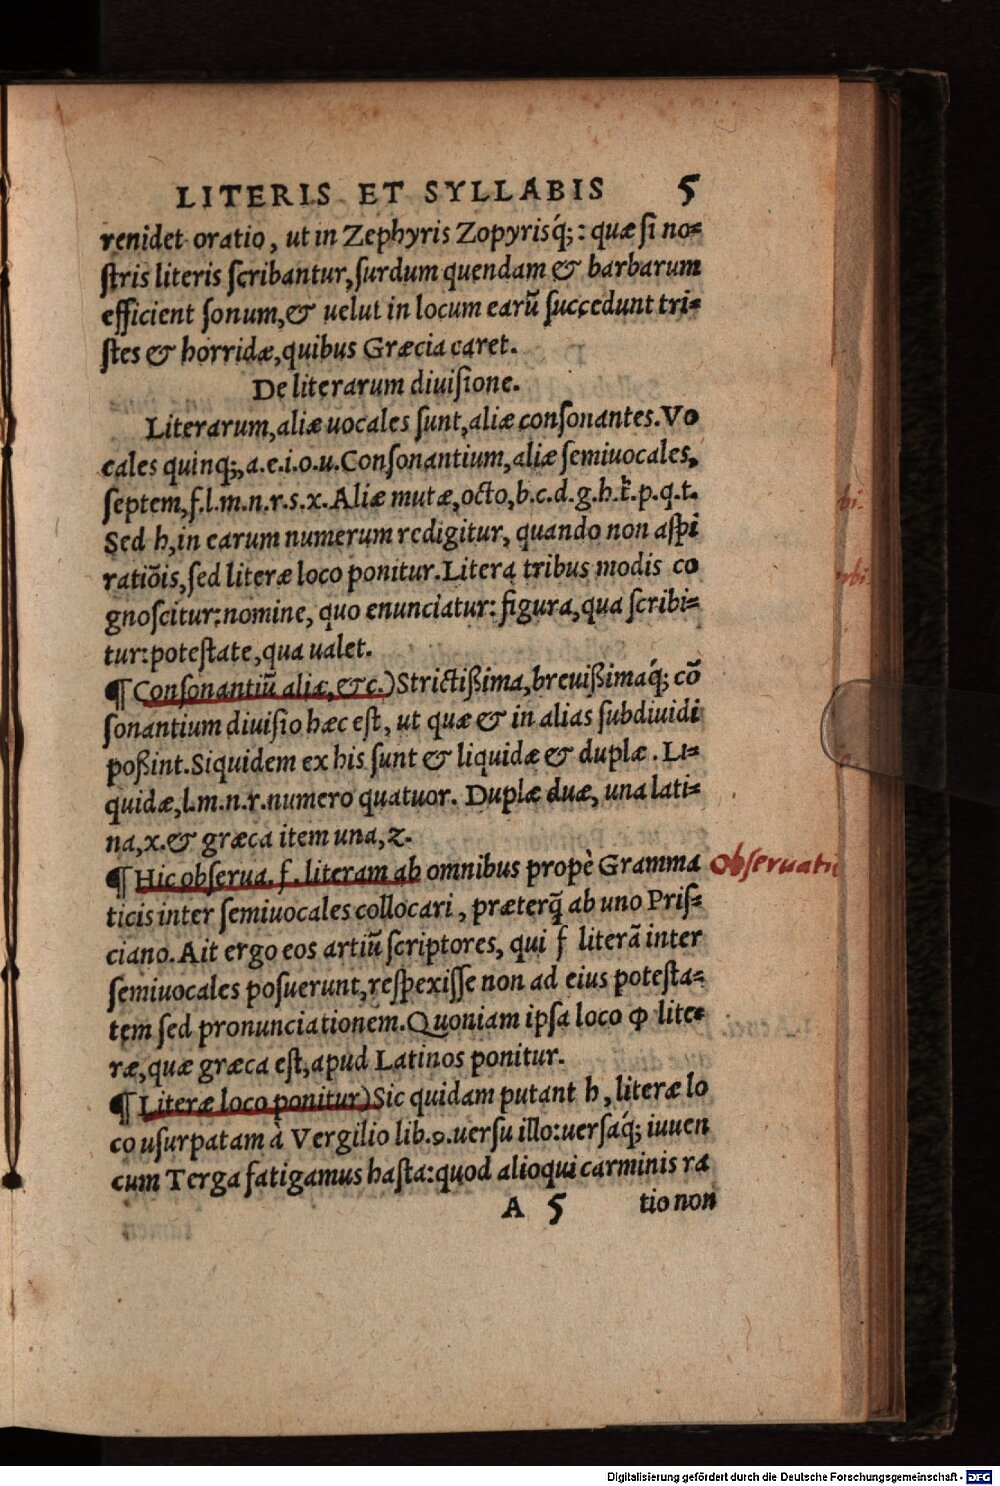 LITERIS ET SYLLABIS 5
renidet oratio, ut in Zephyris Zopyrisq́;: quæ si no=
stris literis scribantur, surdum quendam & barbarum
efficient sonum, & uelut in locum earũ succedunt tri=
stes & horridæ, quibus Græcia caret.
De literarum diuisione.
Literarum, aliæ uocales sunt, aliæ consonantes. Vo
cales quinq;, a.e.i.o.u. Consonantium, aliæ semiuocales,
septem, f.l.m.n.r.s.x. Aliæ mutæ, octo, b.c.d.g.h.k.p.q.t.
Sed h, in earum numerum redigitur, quando non aspi
ratiõis, sed literæ loco ponitur. Litera tribus modis co
gnoscitur: nomine, quo enunciatur: figura, qua scribi=
tur: potestate, qua ualet.
¶ Consonantiũ aliæ, &c.) Strictißima, breuißimaq́; cõ
sonantium diuisio hæc est, ut quæ & in alias subdiuidi
poßint. Siquidem ex his sunt & liquidæ & duplæ. Li=
quidæ, l.m.n.r. numero quatuor. Duplæ duæ, una lati=
na, x. & græca item una, z.
¶ Hic obserua. f. literam ab omnibus propè Gramma
ticis inter semiuocales collocari, præterq̃ ab uno Pris=
ciano. Ait ergo eos artiũ scriptores, qui f literã inter
semiuocales posuerunt, respexisse non ad eius potesta=
tem sed pronunciationem. Quoniam ipsa loco φ lite=
ræ, quæ græca est, apud Latinos ponitur.
¶ Literæ loco ponitur) Sic quidam putant h, literæ lo
co usurpatam à Vergilio lib.9. uersu illo: uersaq́; iuuen
cum Terga fatigamus hasta: quod alioqui carminis ra
A 5 tio non
Obseruatio
Digitalisierung gefördert durch die Deutsche Forschungsgemeinschaft - DFG